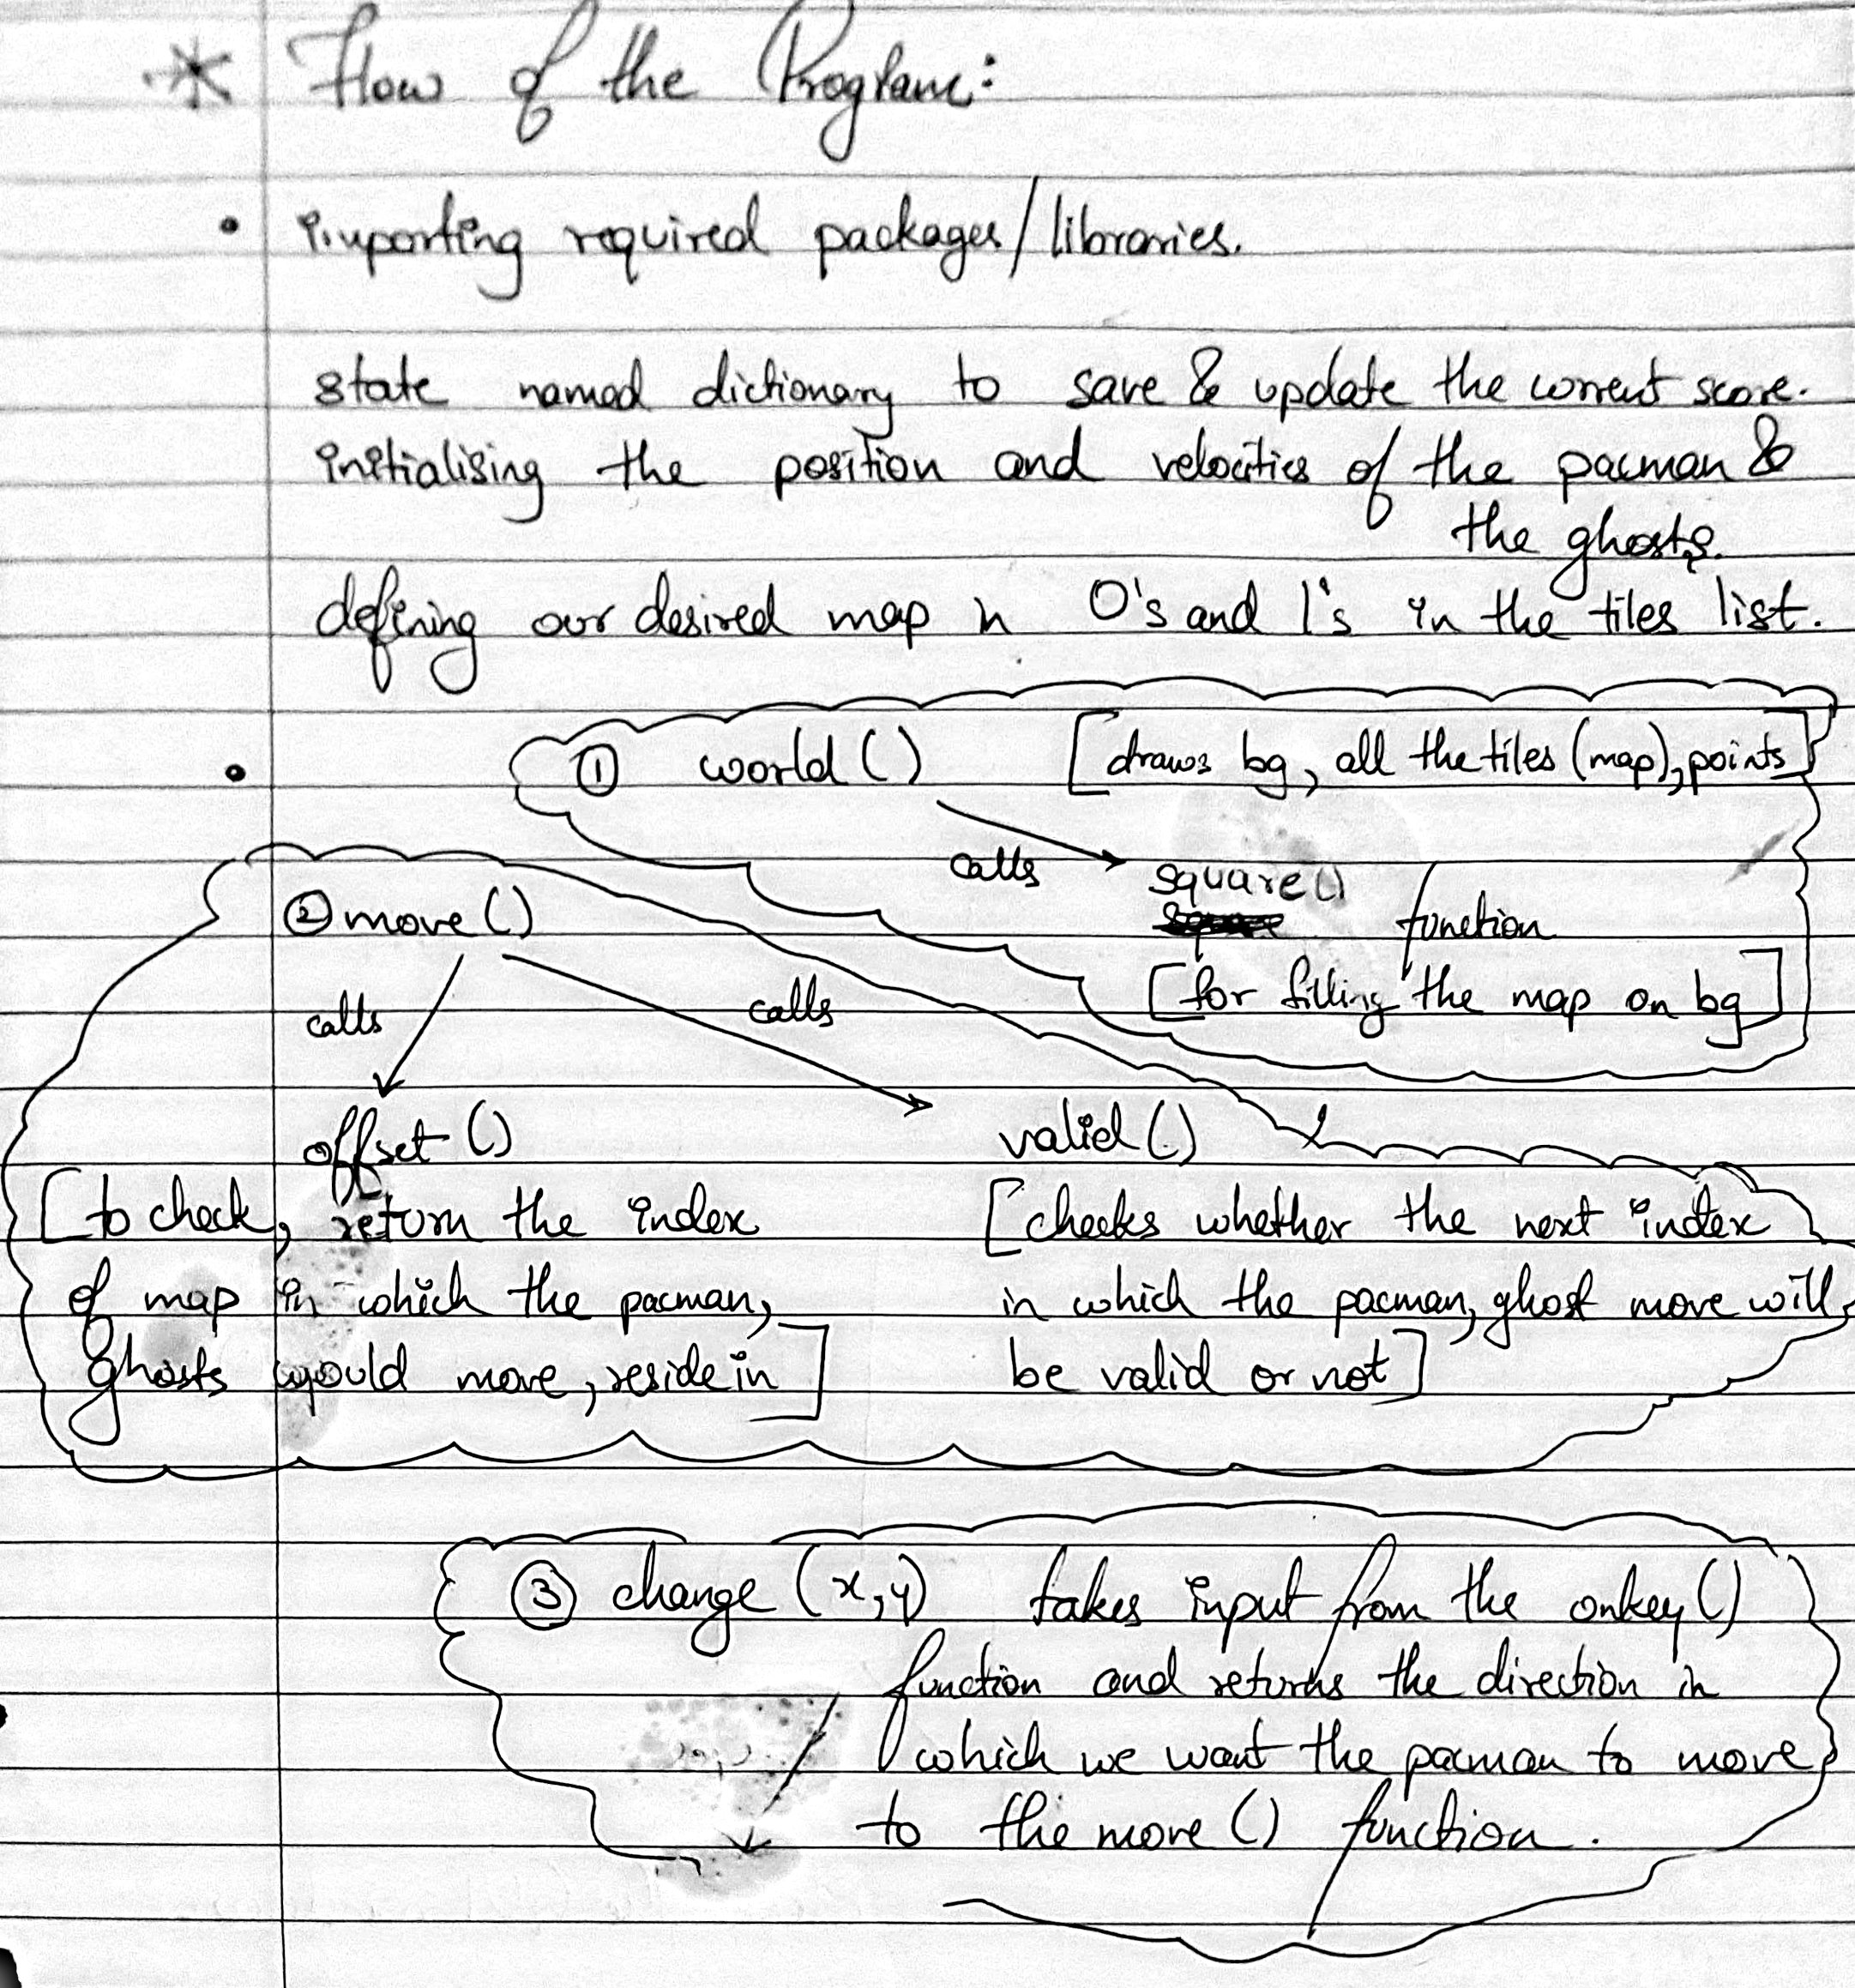 * Flow of the Program:
• importing required packages/libraries.
state named dictionary to save & update the current score.
initialising the position and velocities of the pacman &
the ghosts.
defining our desired map in 0's and 1's in the tiles list.
• ① world () [draws bg, all the tiles (map), points]
calls
square()
function
[for filling the map on bg]
② move ()
calls calls
offset () valid ()
[to check, return the index
of map in which the pacman,
ghosts would move, reside in]
[checks whether the next index
in which the pacman, ghost move will
be valid or not]
③ change (x,y) takes input from the onkey()
function and returns the direction in
which we want the pacman to move
to the move () function.